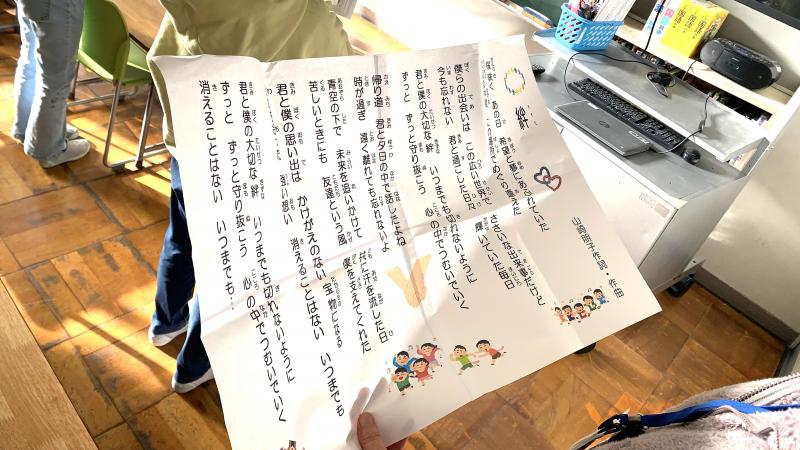 絆
山崎朋子作詞・作曲
桜咲く　あの日　希望と夢にあふれていた
この場所でめぐり逢えた
僕らの出会いは　この広い世界で　ささいな出来事だけど
今も忘れない　君と過ごした日々　輝いていた毎日
君と僕の大切な絆　いつまでも切れないように
ずっと　ずっと守り抜こう　心の中でつむいでいく
帰り道　君と夕日の中で話したよね
時が過ぎ　遠く離れても忘れないよ
青空の下で　未来を追いかけて　共に汗を流した日
苦しいときにも　友達という風　僕を支えてくれた
君と僕の思い出は　かけがえのない　宝物になる
強い想い　消えることはない　いつまでも
君と僕の大切な絆　いつまでも切れないように
ずっと　ずっと守り抜こう　心の中でつむいでいく
消えることはない　いつまでも…